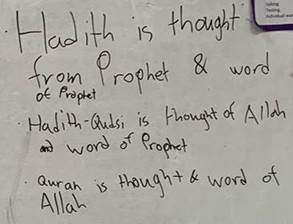 Hadith is thought
from Prophet & word
of Prophet
· Hadith-Qudsi is thought of Allah
and word of Prophet
· Quran is thought & word of
Allah